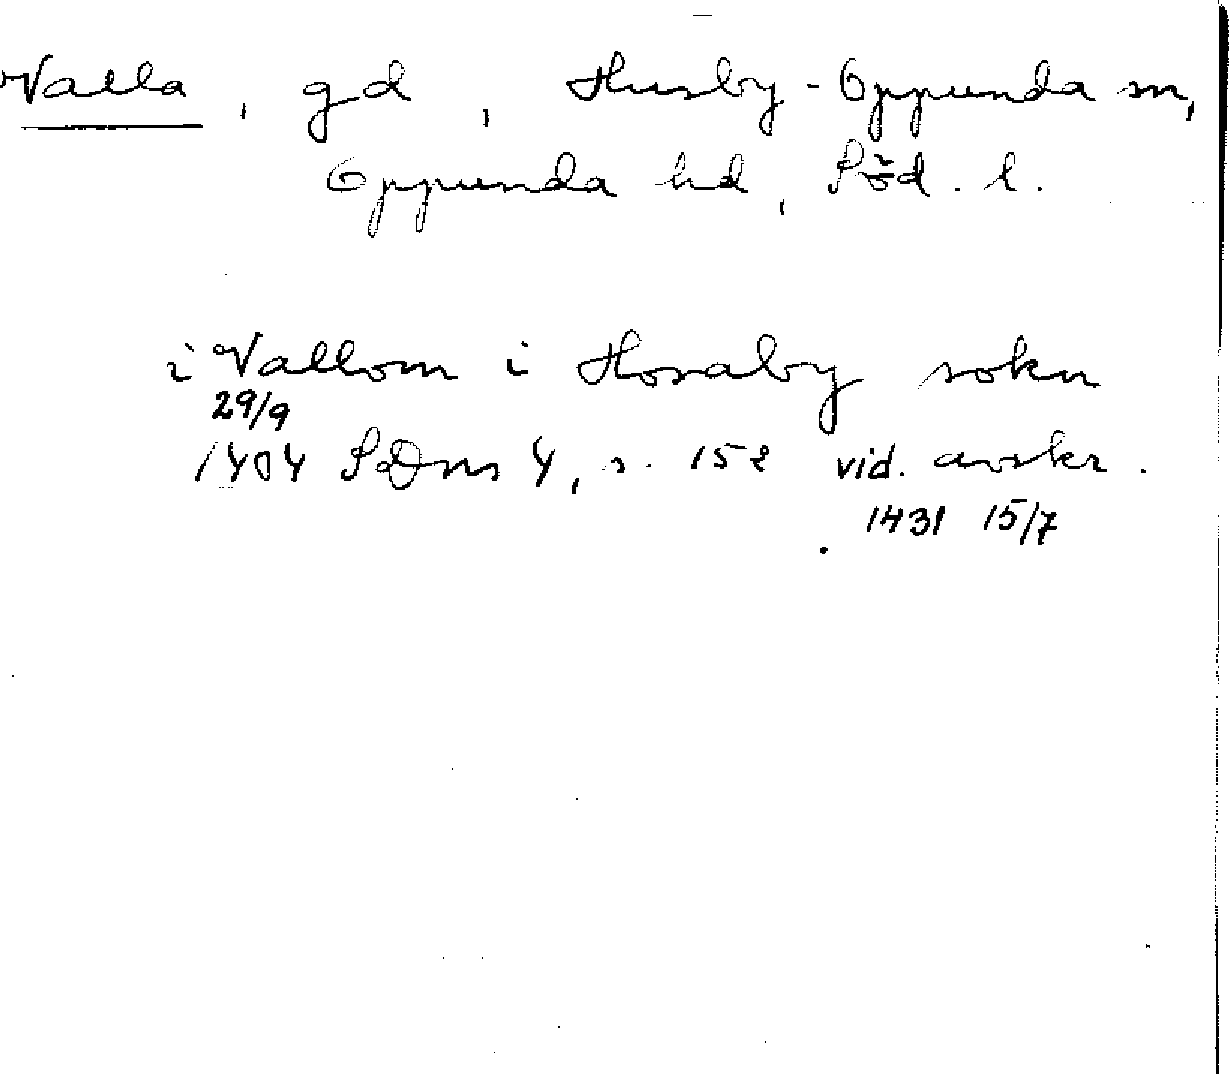 Valla, gd, Husby-Oppunda sn,
Oppunda hd, Söd. l.
i Vallom i Hosaby sokn
29/9
1404 SDns 4, s. 152 vid. avskr.
1431 15/7